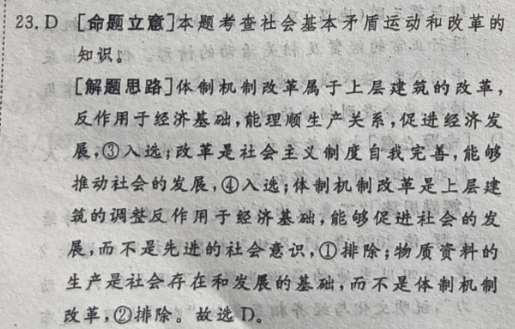 23. D [命题立意]本题考查社会基本矛盾运动和改革的
知识。
[解题思路]体制机制改革属于上层建筑的改革，
反作用于经济基础,能理顺生产关系,促进经济发
展,③入选;改革是社会主义制度自我完善,能够
推动社会的发展,④入选;体制机制改革是上层建
筑的调整反作用于经济基础,能够促进社会的发
展,而不是先进的社会意识,①排除;物质资料的
生产是社会存在和发展的基础,而不是体制机制
改革,②排除。故选 D。